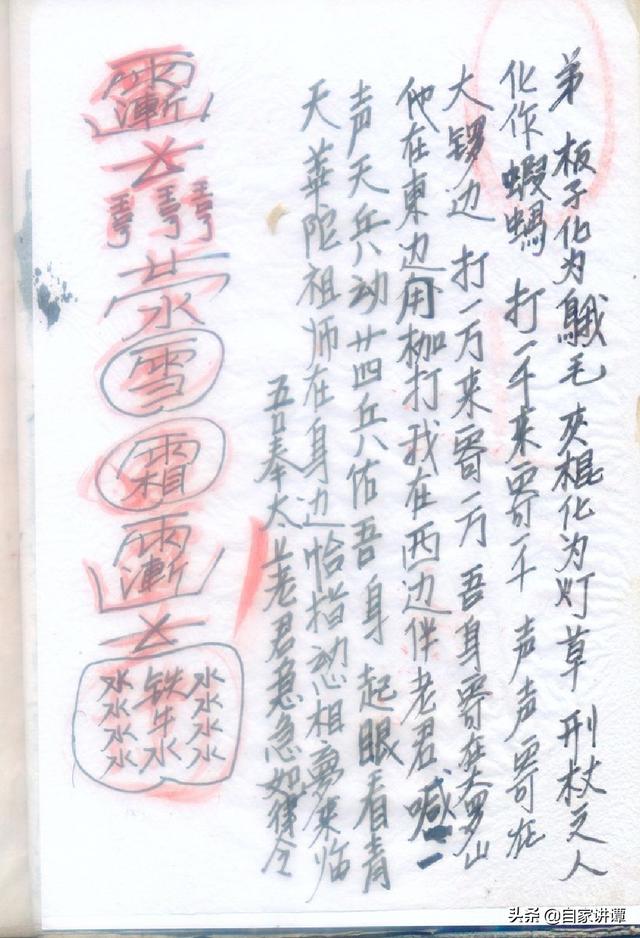 弟 板子化为鵝毛 夾棍化为灯草 刑杖之人
化作蝦蝸 打一千来寄一千 声声寄在
大锣边 打一万来寄一万 吾身寄在太罗山
他在東边用枷打我在西边伴老君 喊一
声天兵动廿四兵佑吾身 起眼看青
天華陀祖师在身边恰指动心相夢来临
吾奉太上老君急急如律令
水
雪
霜
水水水水
铁牛水
水水水水
头条 @自家讲蕈